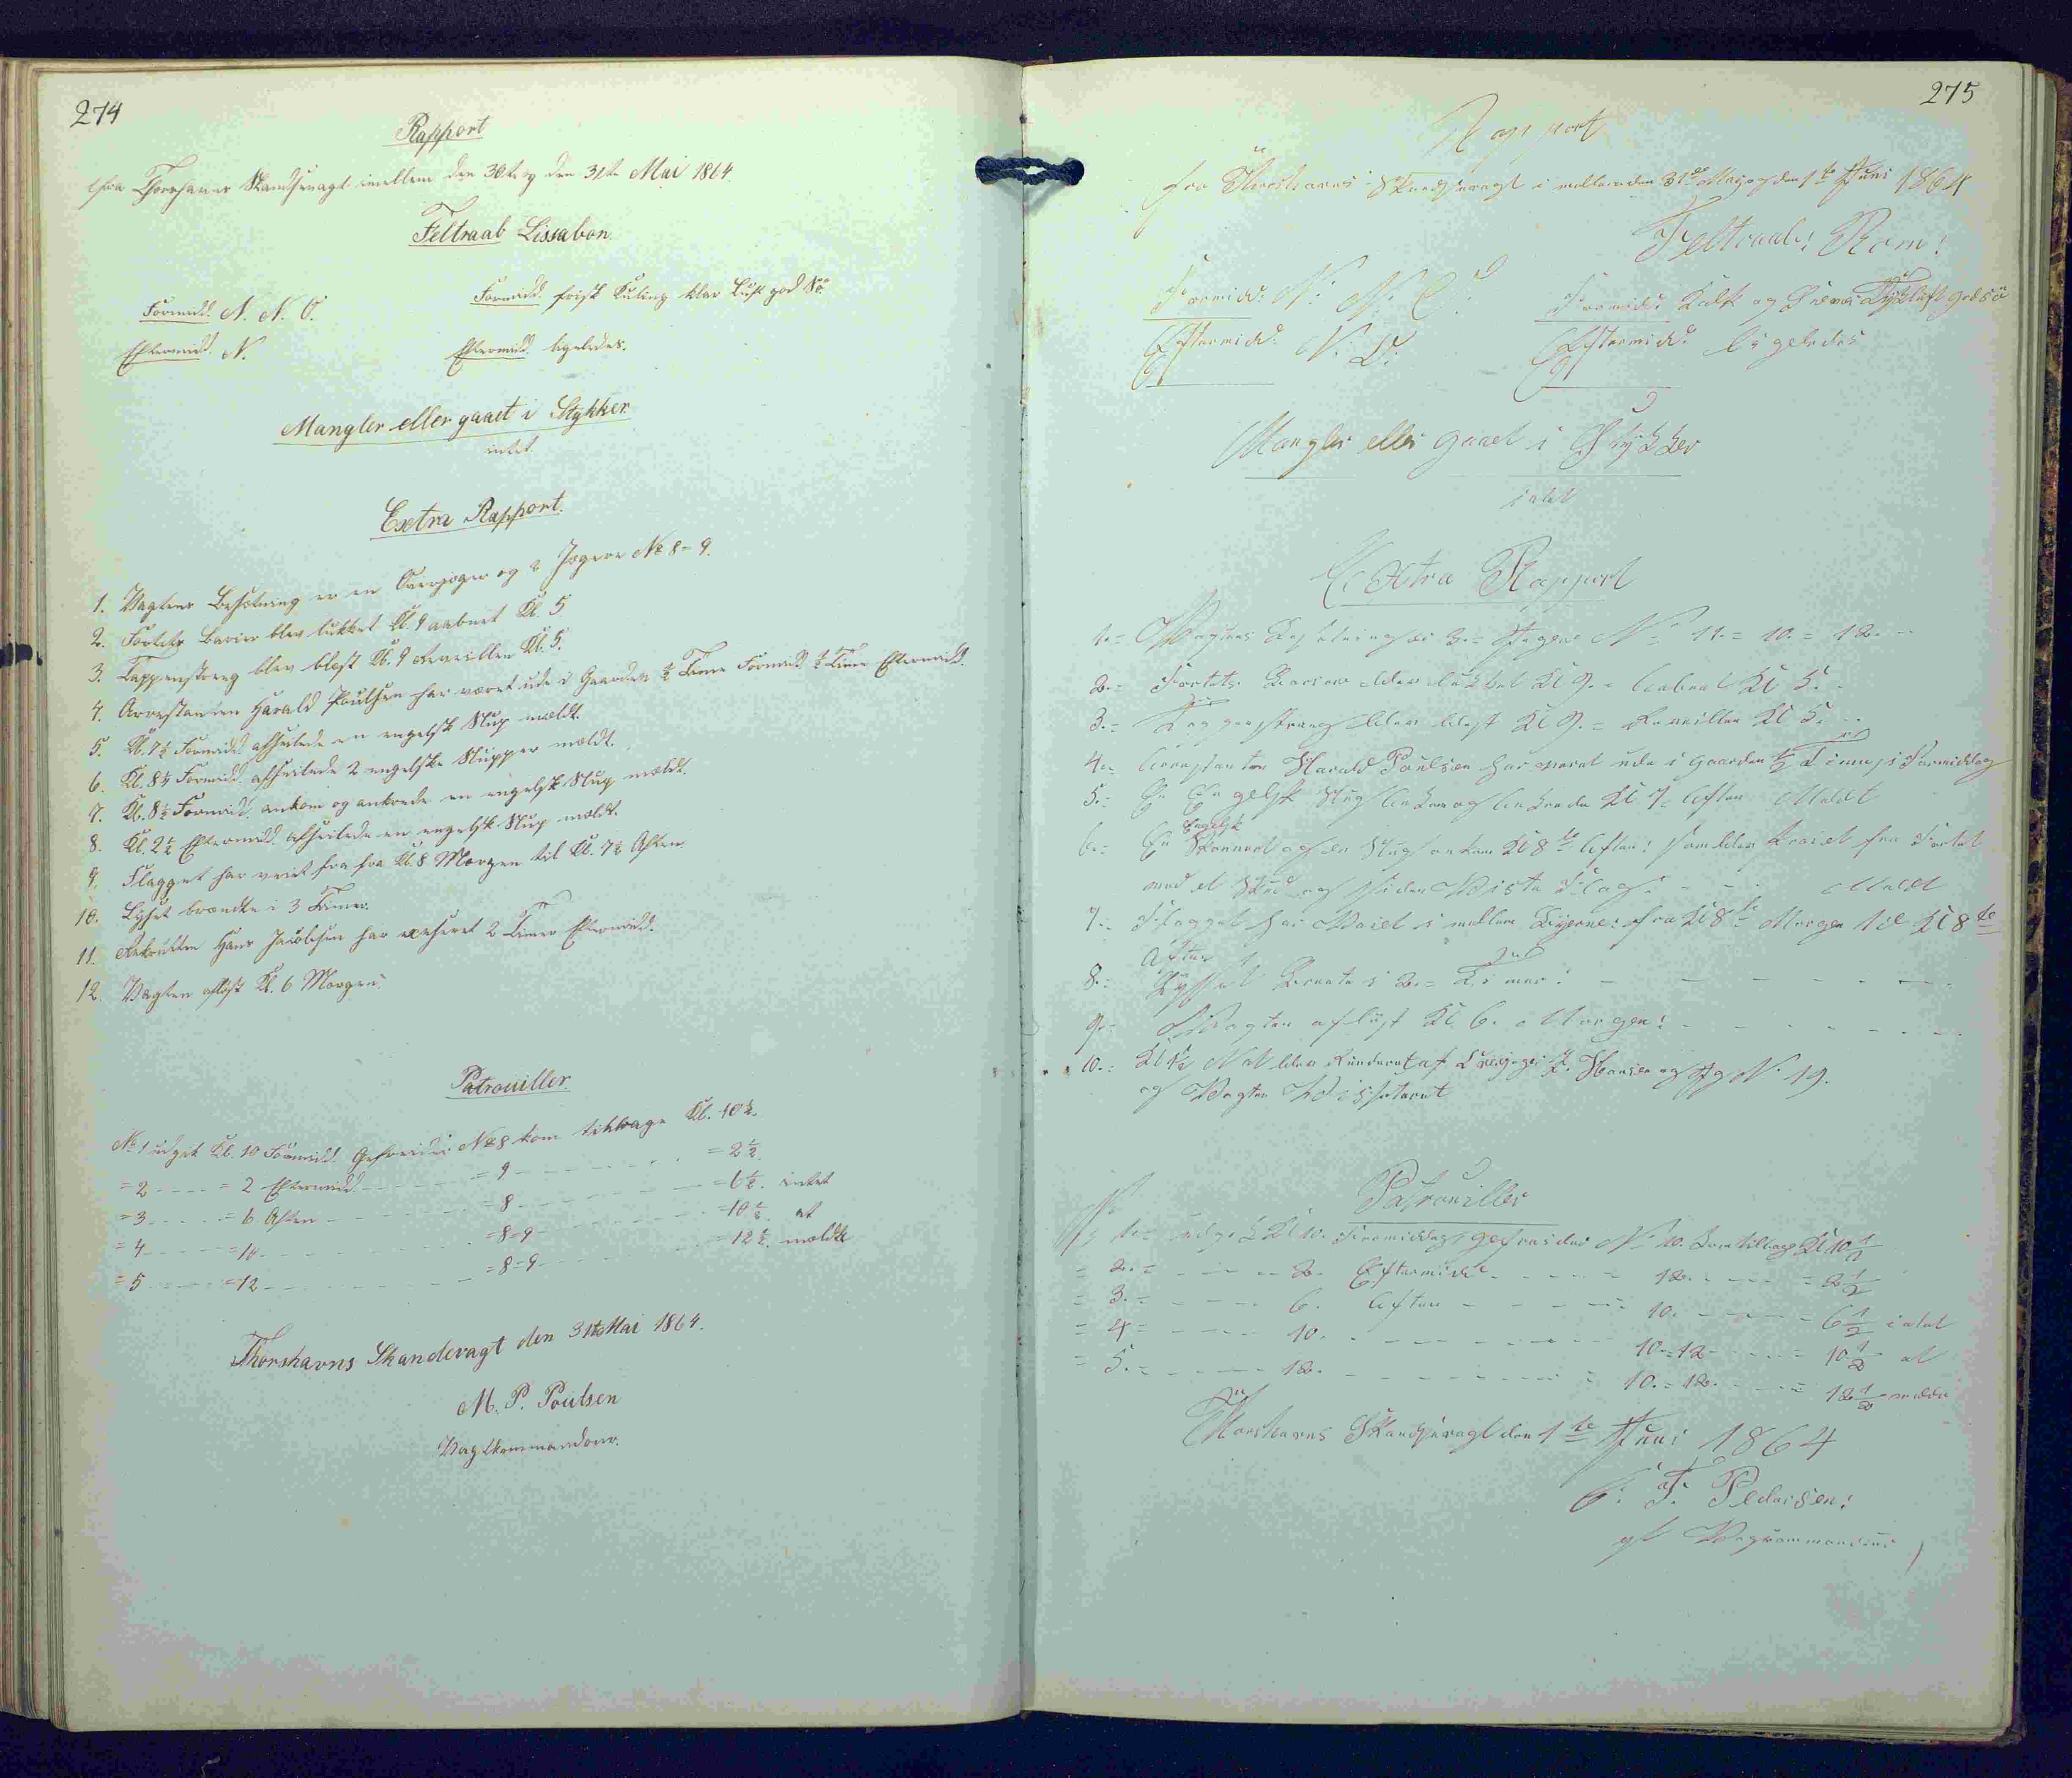 274
Rapport
fra Thorshavns Skandsevagt imellem den 30te og den 31te Mai 1864
Feltraab Lissabon.
Formidd. N. N. O. Formidd. frisk Kuling klar Luft god Sö.
Eftermidd. N. Eftermidd. ligeledes.
Mangler eller gaaet i Stykker
intet.
Extra Rapport.
1. Vagtens Besætning er en Overjæger og 2 Jægere No 8 = 9.
2. Fortets Barier blev lukket Kl. 9 aabnet Kl. 5
3. Tappenstreg blev blæst Kl. 9 Reveillen Kl. 5.
4. Arrestanten Harald Poulsen har været ude i Gaarden ½ Time Formidd. ½ Time Eftermidd.
5. Kl. 7½ Formidd. afseilede en engelsk Slup mældt.
6. Kl. 8¼ Formidd. afseilede 2 engelske Slupper mældt.
7. Kl. 8½ Formidd. ankom og ankrede en engelsk Slup mældt.
8. Kl. 2½ Eftermidd. afseilede en engelsk Slup mældt.
9. Flagget har vaiet fra fra Kl. 8 Morgen til Kl. 7½ Aften.
10. Lyset brændte i 3 Timer.
11. Rekrutten Hans Jacobsen har exseret 2 Timer Eftermidd.
12. Vagten aflöst Kl. 6 Morgen.
Patrouiller.
No 1 udgik Kl. 10 Formidd. Gefreider No 8 kom tilbage Kl. 10½.
= 2 - - - - = 2 Eftermidd. - - - - = 9 - - - - = 2½.
= 3 - - - - = 6 Aften - - - - = 8 - - - - = 6½. intet
= 4 - - - - = 10 - - - - = 8 = 9 - - - - = 10½. at
= 5 - - - - = 12 - - - - = 8 = 9 - - - - = 12½. mælde
Thorshavns Skandsevagt den 31te Mai 1864.
M. P. Poulsen
Vagtkommandeur.
275
Rapport
fra Thorshavns Skandsevagt i mellem den 31te May og den 1te Juni 1864
Feltraab: Rom:
Formidd: N: N: O: Formidd: Kulk og Tykluft god sö
Eftermidd: N: O: Eftermidd: ligeledes
Mangler eller gaaet i Stykker
intet
Extra Rapport
1.= Vagtens Besætning er 3.= Jægere No 11.= 10.= 12.
2.= Fortets Bariere blev lukket Kl 9.= Aabnet Kl 5.
3.= Tappenstræg blev blest Kl 9.= Reveillen Kl 5.
4.= Arrestanten Harald Poulsen har været ude i Gaarden ½ Time i Formiddag
5.= En Engelsk Slup Ankom og Ankrede Kl 7.= Aften Meldt
6.= En Engelsk Skonnert og en Slup ankom Kl 8te Aften: som blev Praiet fra Fortet
med et Skud og siden Viste Flag: - - - Meldt
7.= Flagget har Vaiet i mellem fra Kl 8te Morgen til Kl 8te
Aften
8.= Lysset Brente i 2.= Timer:
9.= Vagten aflöst Kl 6. Morgen:
10.= Kl 1½ Nat blev Runderet af Hansen og Jg No 19.
og Vagten Visiteret
Patrouiller
No 1.= udgik Kl 10. Formiddag gefreider No 10. kom tilbage Kl 10½
= 2.= - - - - 2. Eftermidd - - - - = 12. - - - - = 2½
= 3.= - - - - 6. Aften - - - - = 10. - - - - = 6½ intet
= 4.= - - - - 10. - - - - = 10.=12. - - - - = 10½ at
= 5.= - - - - 12. - - - - = 10.=12. - - - - = 12½ melde
Thorshavns Skandsevagt den 1te Juni 1864
T: Pedersen:
Vagtkommandeur